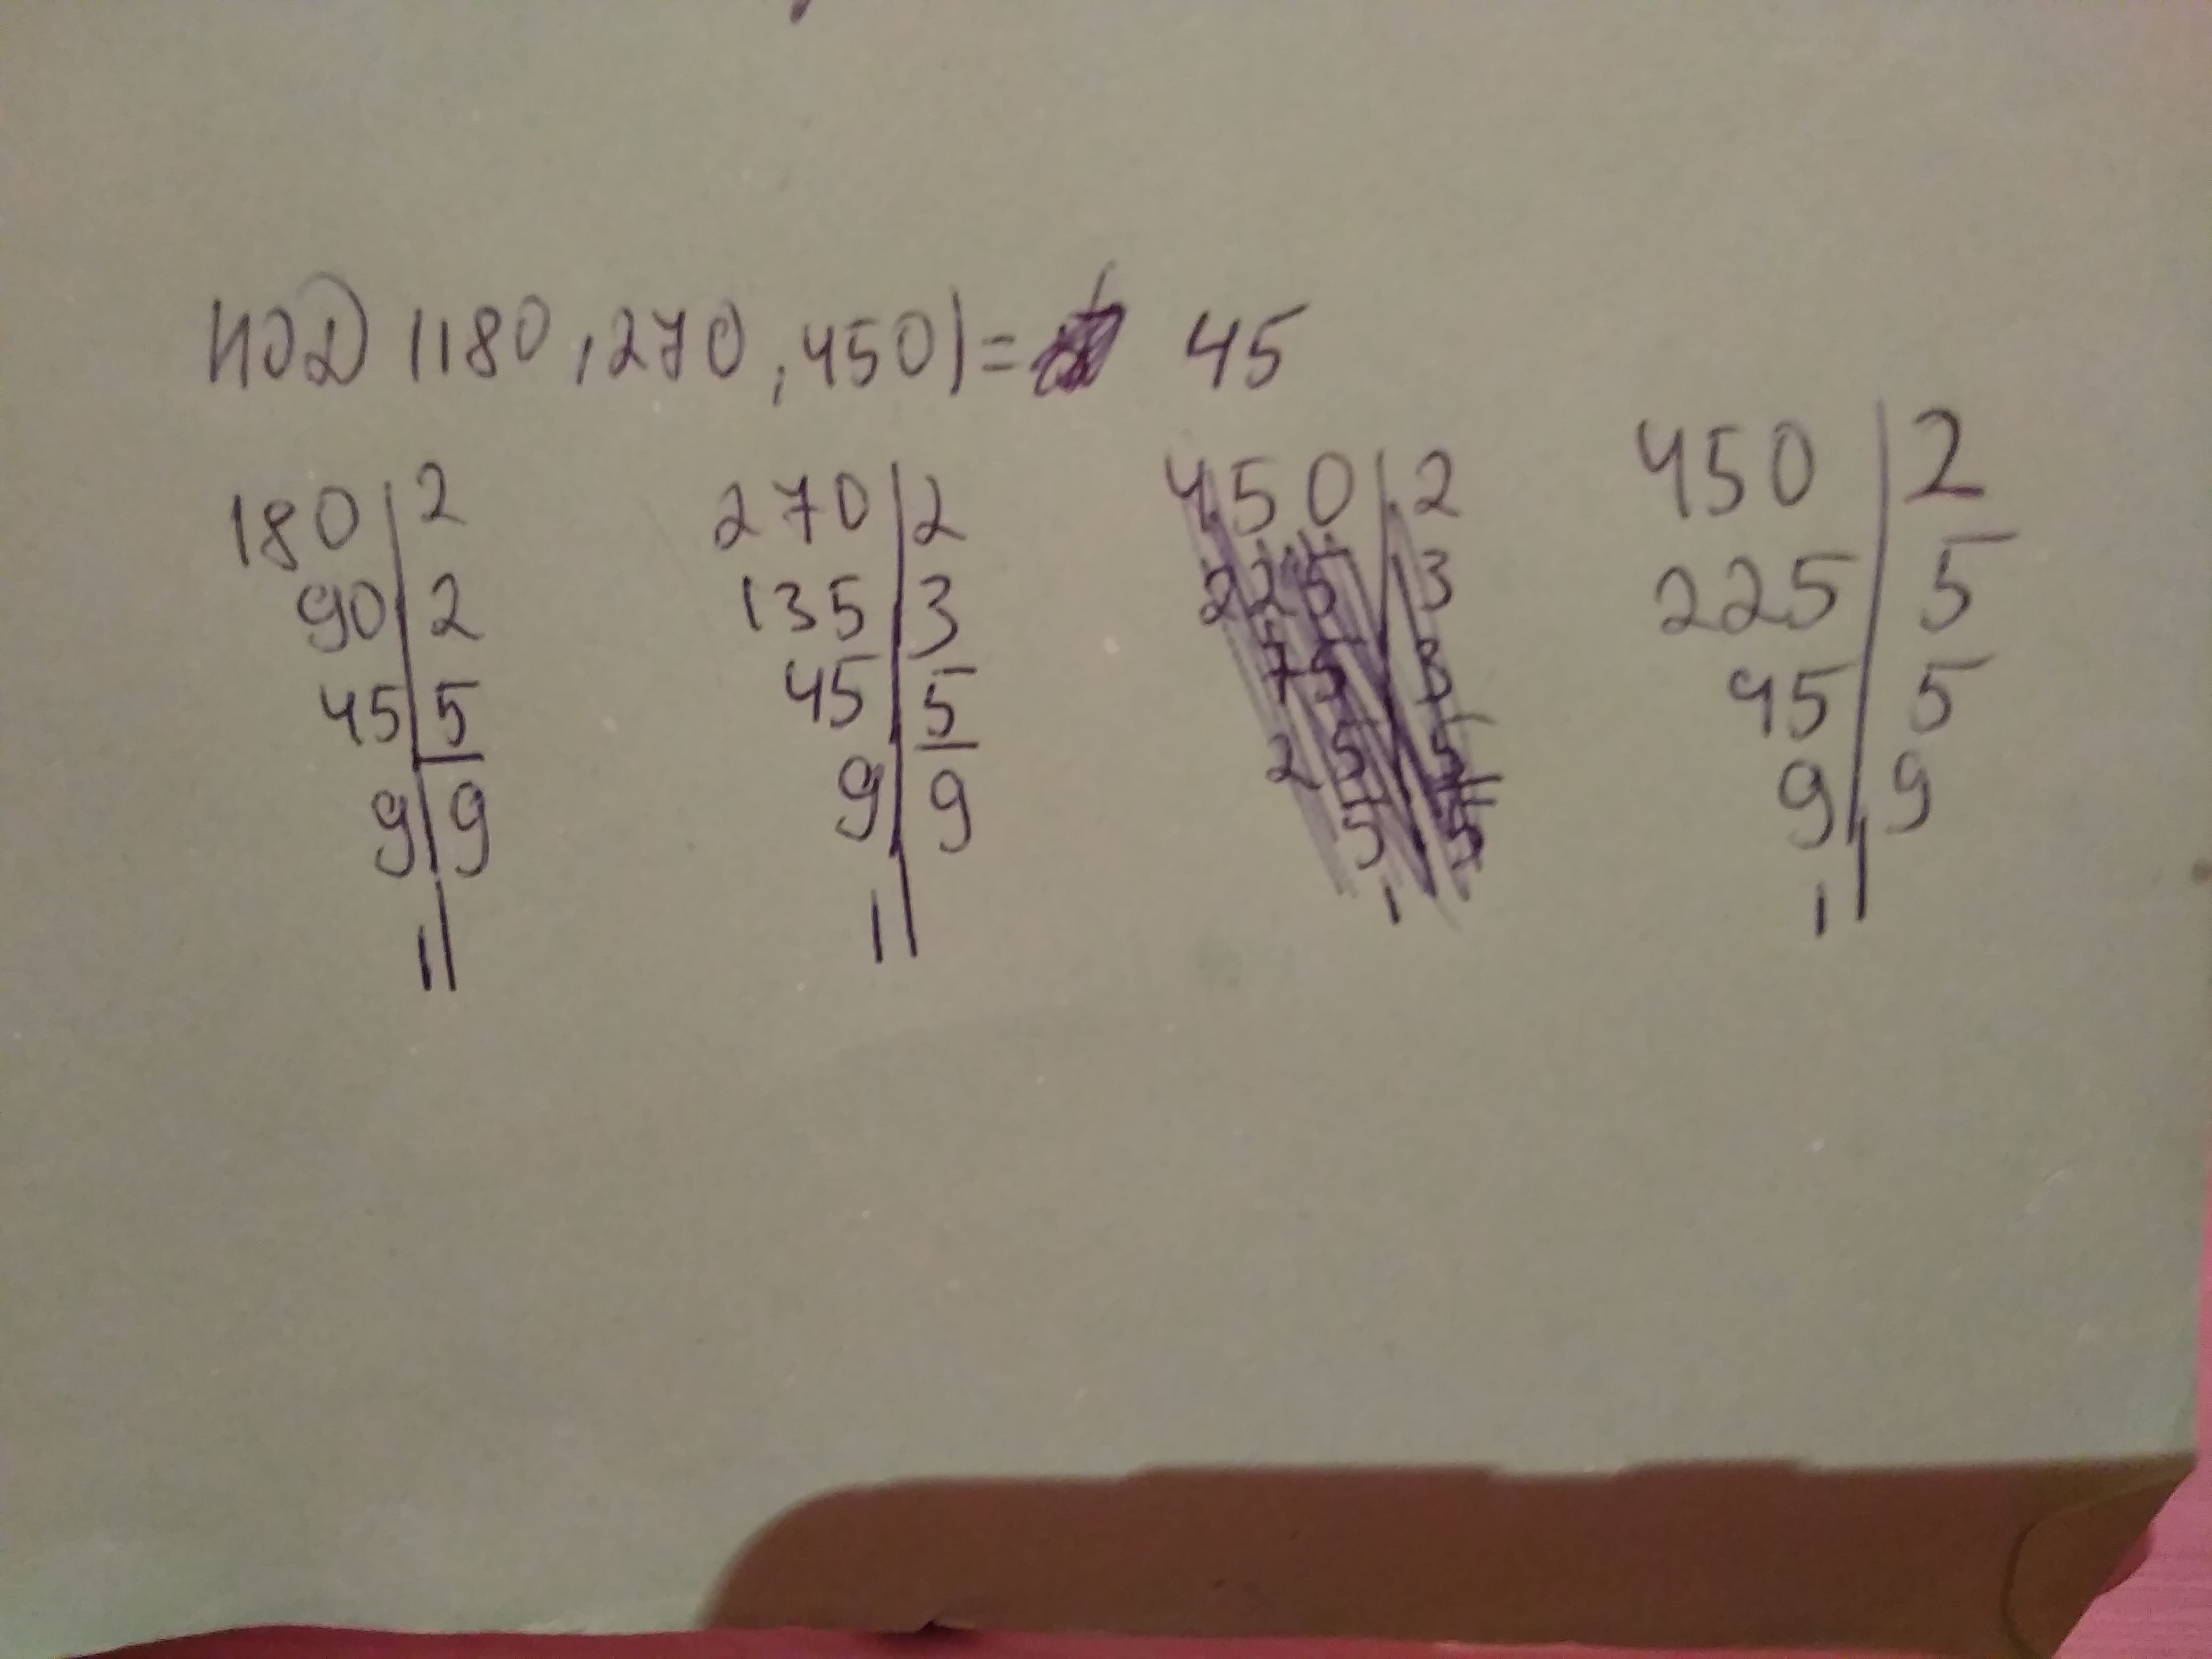 НОД (180, 270, 450) = 45
180 | 2
90 | 2
45 | 5
9 | 9
1 |
270 | 2
135 | 3
45 | 5
9 | 9
1 |
450 | 2
225 | 3
75 | 3
25 | 5
5 | 5
1
450 | 2
225 | 5
45 | 5
9 | 9
1 |